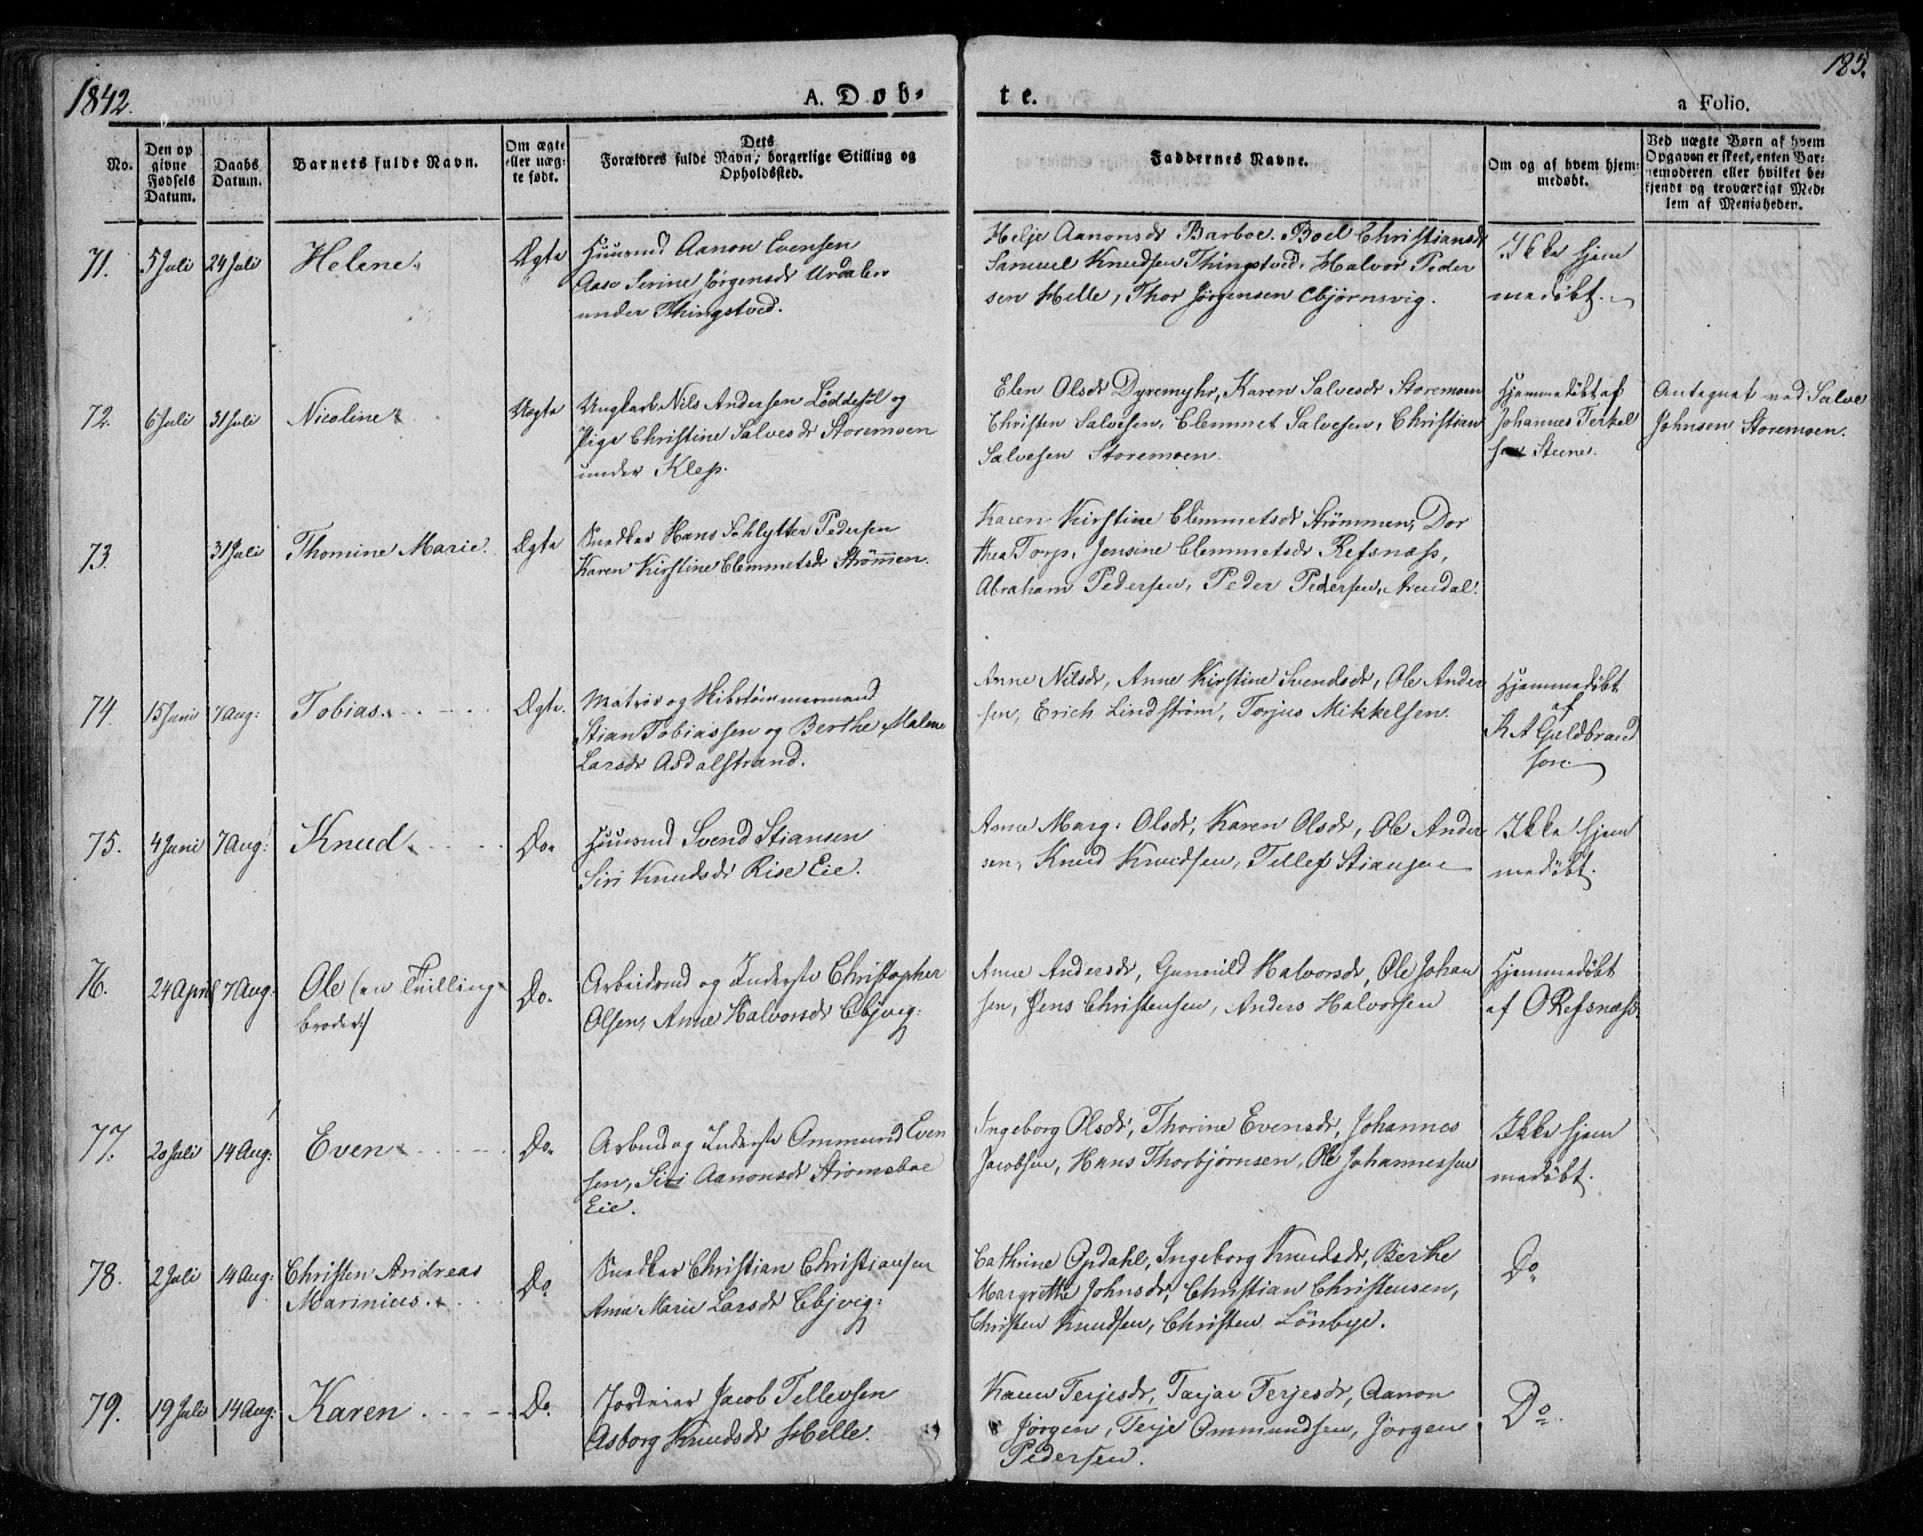 1842.
A. Døb-
te.
185.
a Folio.
No.
Den op
givne
Fødsels
Datum.
Daabs
Datum.
Barnets fulde Navn.
Om ægte
eller uæg-
te født.
Dets
Forældres fulde Navn, borgerlige Stilling og
Opholdssted.
Faddernes Navne.
Om og af hvem hjem-
medøbt.
Ved uægte Børn af hvem
Opgaven er skeet, enten Bar-
nemoderen eller hvilket be-
kjendt og troværdigt Med-
lem af Menigheden.
71. 5 Juli 24 Juli Helene. Ægte
Huusmd Aanon Evensen
Aase Serine Jørgensdr Urdalen
under Thingstved.
Helje Aanonsdr Barboe. Boel Christiansdr
Samuel Knudsen Thingstved. Halvor Peder
sen Helle, Thor Jørgensen Ebjørnsvig.
Ikke hjem
medøbt.
72. 6 Juli 31 Juli Nicoline Uægte
Ungkarl Nils Andersen Løddesøl og
Pige Christine Salvesdr Storemoen
under Klep.
Elen Olsdr Dyremyhr, Karen Salvesdr Storemoen
Christen Salvesen, Clemmet Salvesen, Christian
Salvesen Storemoen.
Hjemmedøbt af
Johannes Terkel
sen Steene.
Antegnet ved Salve
Johnsen Storemoen.
73. 31 Juli Thomine Marie. Ægte
Snedker Hans Schlytter Pedersen
Karen Kirstine Clemmetsdr Strømmen.
Karen Kirstine Clemmetsdr Strømmen, Dor
thea Torp, Jensine Clemmetsdr Refsnæss,
Abraham Pedersen, Peder Pedersen, Arendal.
74. 15 Juni 7 Aug: Tobias. Ægte.
Matros og Skibstømmermand
Stian Tobiassen og Berthe Malene
Larsdr Asdalstrand.
Anne Nilsdr, Anne Kirstine Svendsdr, Ole Ander
sen, Erich Lindstrøm, Torjus Mikkelsen.
Hjemmedøbt
af
K A Guldbrand
sen.
75. 4 Juni 7 Aug: Knud. Do.
Huusmd Svend Stiansen
Siri Knudsdr Rise Eie.
Anne Marg: Olsdr, Karen Olsdr, Ole Ander
sen, Knud Knudsen, Tellef Stiansen
Ikke hjem
medøbt.
76. 24 April 7 Aug: Ole (en Tvilling-
broder:/ Do.
Arbeidsmd og Inderste Christopher
Olsen, Anne Halvorsdr Ebjvig:
Anne Andersdr, Gunnild Halvorsdr, Ole Johan
sen, Jens Christensen, Anders Halvorsen
Hjemmedøbt
af O Refsnæss.
77. 20 Juli 14 Aug: Even Do.
Arbmd og Inderste Ommund Even
sen, Siri Aanonsdr Strømsboe
Eie.
Ingeborg Olsdr, Thorine Evensdr, Johannes
Jacobsen, Hans Thorbjørnsen, Ole Johannessen
Ikke hjem
medøbt.
78. 2 Juli 14 Aug: Christen Andreas
Marinius. Do
Snedker Christian Christiansen
Anne Marie Larsdr Ebjvig:
Cathrine Opdahl, Ingeborg Knudsdr, Berthe
Margrethe Johnsdr, Christian Christensen,
Christen Knudsen, Christen Lönbye.
Do
79. 19 Juli 14 Aug: Karen Do.
Jordeier Jacob Tellevsen
Asborg Knudsdr Helle.
Karen Terjesdr, Tarjer Terjesdr, Aanon
Jørgen, Terje Ommundsen, Jørgen
Pedersen.
Do